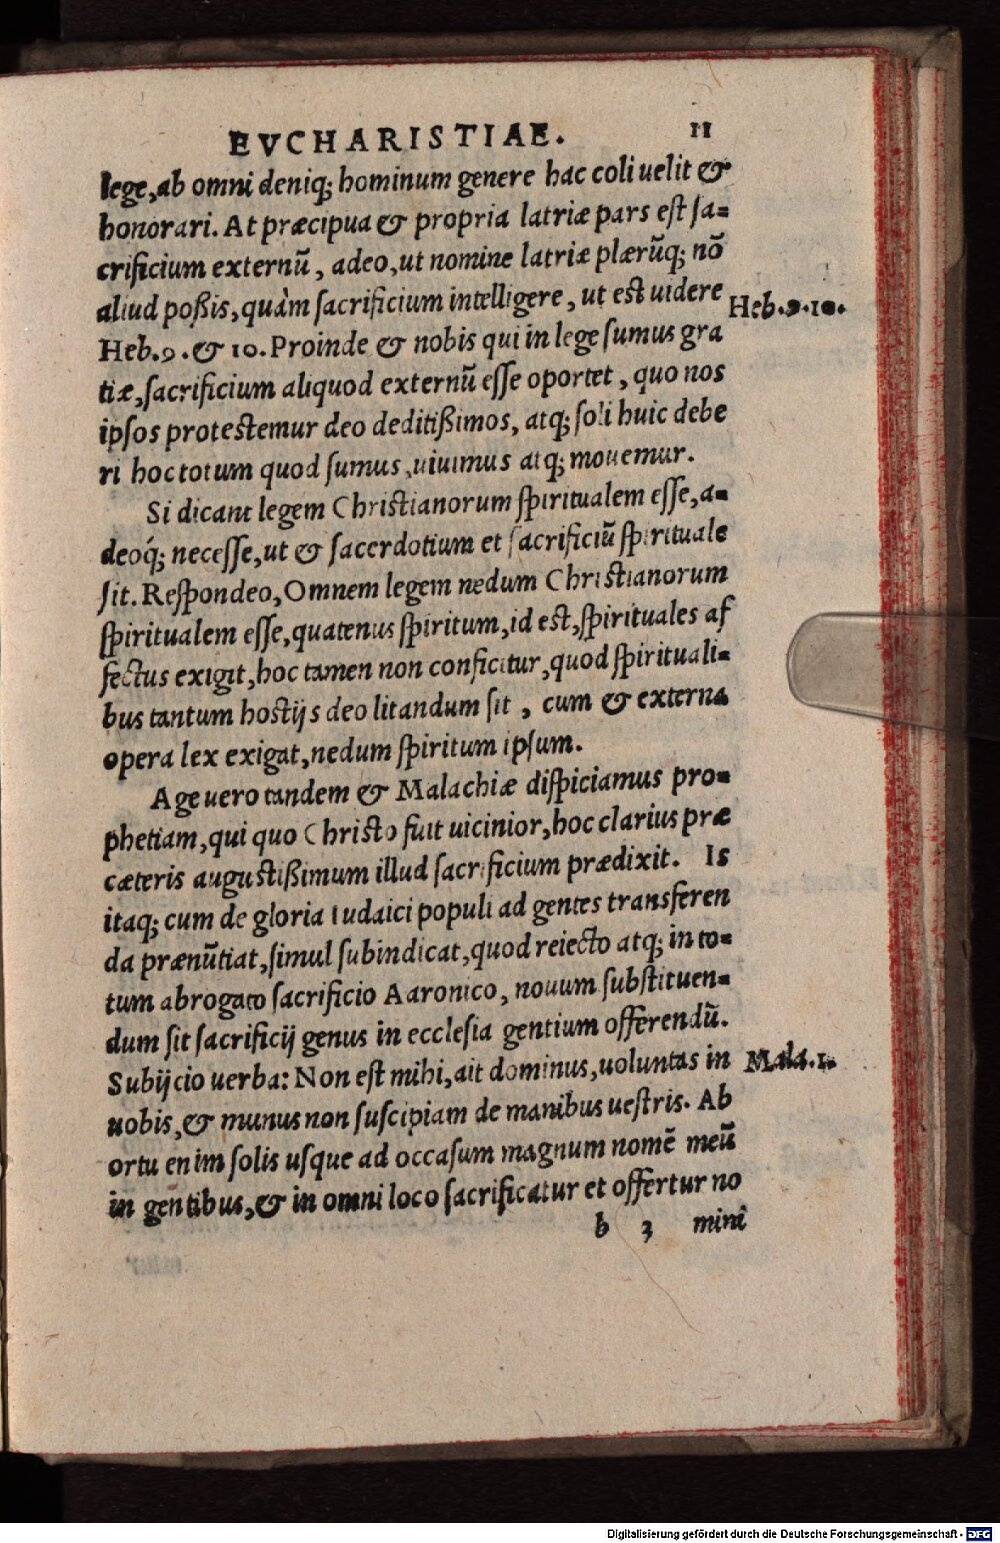 EVCHARISTIAE. 11
lege, ab omni deniq; hominum genere hac coli uelit &
honorari. At præcipua & propria latriæ pars est sa=
crificium externũ, adeo, ut nomine latriæ plærũq; nõ
aliud poßis, quàm sacrificium intelligere, ut est uidere
Heb.9.10.
Heb.9. & 10. Proinde & nobis qui in lege sumus gra
tiæ, sacrificium aliquod externũ esse oportet, quo nos
ipsos protestemur deo deditißimos, atq; soli huic debe
ri hoc totum quod sumus, uiuimus atq; mouemur.
Si dicant legem Christianorum spiritualem esse, a=
deoq́; necesse, ut & sacerdotium et sacrificiũ spirituale
sit. Respondeo, Omnem legem nedum Christianorum
spiritualem esse, quatenus spiritum, id est, spirituales af
fectus exigit, hoc tamen non conficitur, quod spirituali=
bus tantum hostijs deo litandum sit, cum & externa
opera lex exigat, nedum spiritum ipsum.
Age uero tandem & Malachiæ dispiciamus pro=
phetiam, qui quo Christo fuit uicinior, hoc clarius præ
cæteris augustißimum illud sacrificium prædixit. Is
itaq; cum de gloria Iudaici populi ad gentes transferen
da prænũtiat, simul subindicat, quod reiecto atq; in to=
tum abrogato sacrificio Aaronico, nouum substituen=
dum sit sacrificij genus in ecclesia gentium offerendũ.
Subijcio uerba: Non est mihi, ait dominus, uoluntas in
Mala.1.
uobis, & munus non suscipiam de manibus uestris. Ab
ortu enim solis usque ad occasum magnum nomẽ meũ
in gentibus, & in omni loco sacrificatur et offertur no
b 3 mini
Digitalisierung gefördert durch die Deutsche Forschungsgemeinschaft - DFG